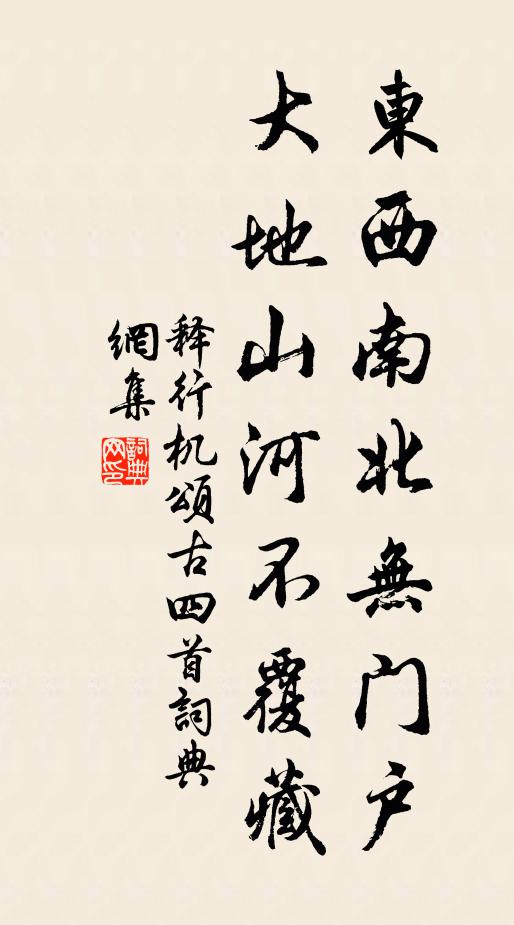 東西南北無门户
大地山河不覆藏
释行机頌古四首詞典
網集
詞典网印